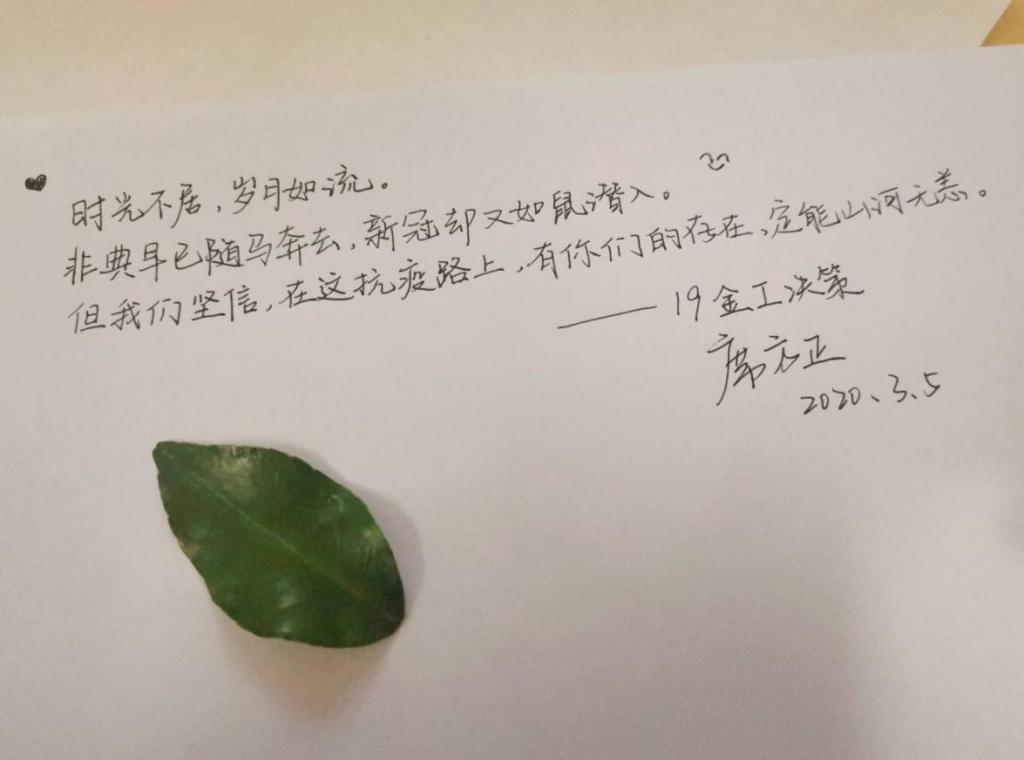 时光不居,岁月如流。
非典早已随马奔去,新冠却又如鼠潜入。
但我们坚信,在这抗疫路上,有你们的存在,定能山河无恙。
——19金工决策
席方正
2020、3、5